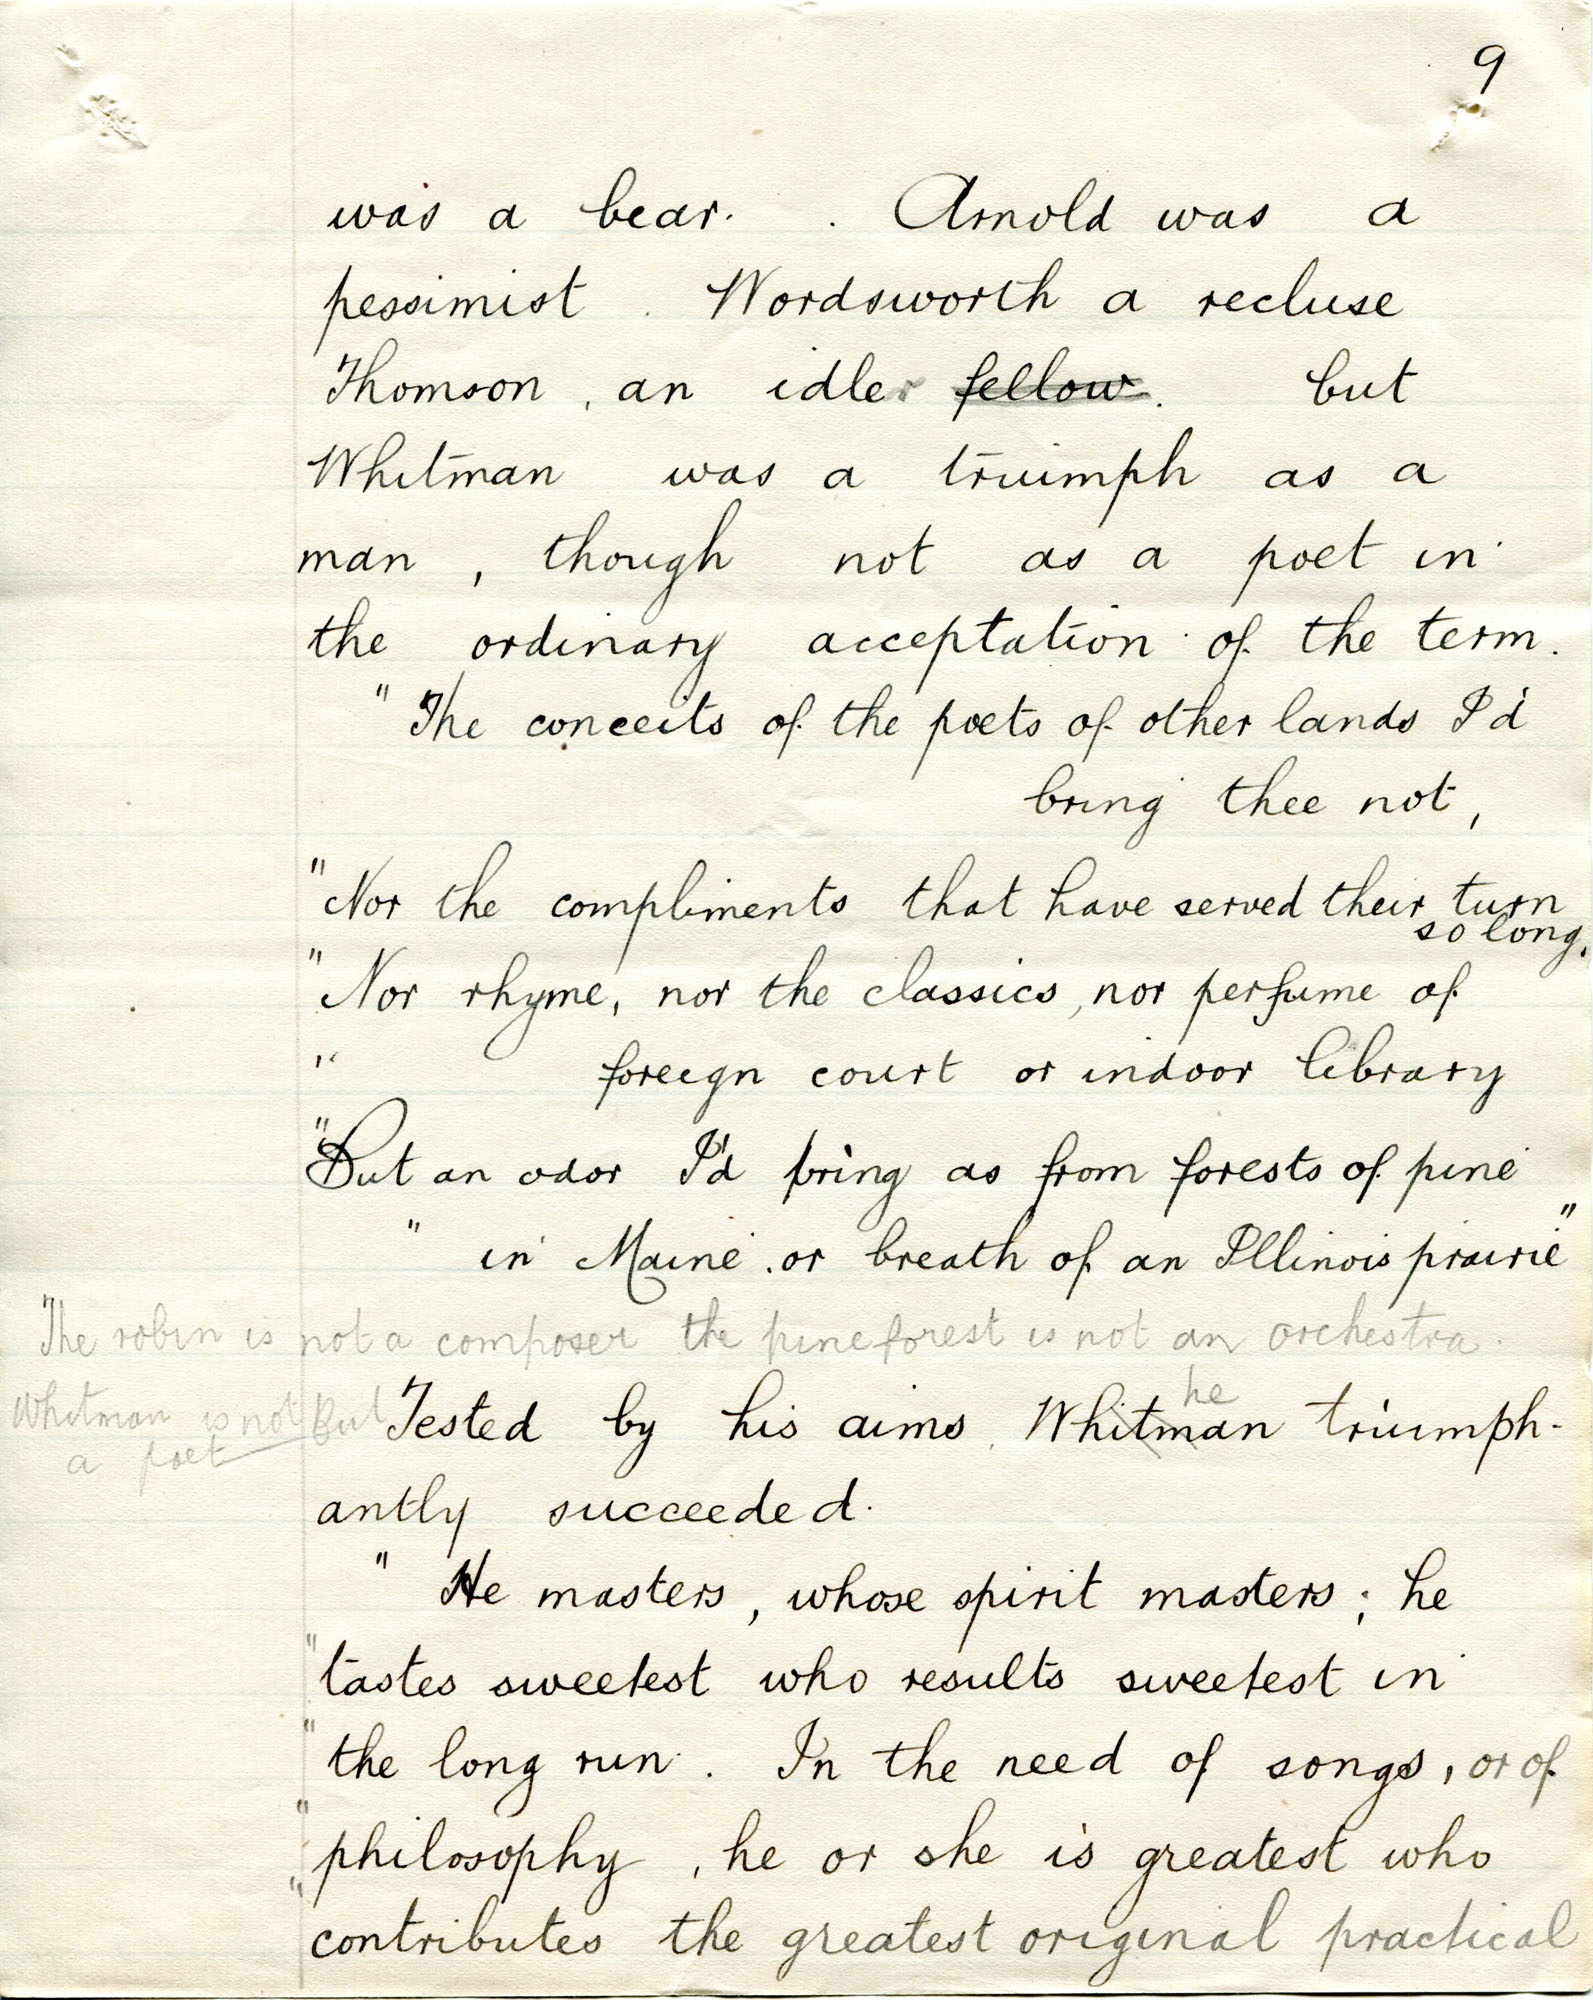 9
was a bear. . Arnold was a
pessimist . Wordsworth a recluse
Thomson , an idler fellow. but
Whitman was a triumph as a
man , though not as a poet in
the ordinary acceptation of the term.
" The conceits of the poets of other lands I'd
bring thee not ,
" Nor the compliments that have served their turn
so long,
" Nor rhyme, nor the classics, nor perfume of
" foreign court or indoor library
" But an odor I'd bring as from forests of pine
" in Maine . or breath of an Illinois prairie "
The robin is not a composer the pine forest is not an orchestra.
Whitman is not
a poet
he
But Tested by his aims, Whitman triumph-
antly succeeded.
" He masters , whose spirit masters ; he
" tastes sweetest who results sweetest in
" the long run . In the need of songs , or of
" philosophy , he or she is greatest who
" contributes the greatest original practical